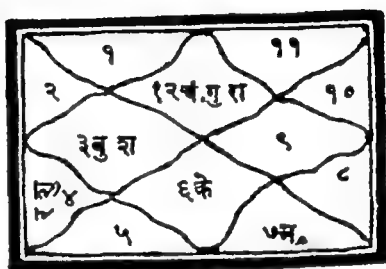 १ ११
२ १२ चं.गु रा १०
३ बु श ९
४ ६ के ८
५ ७ मं.